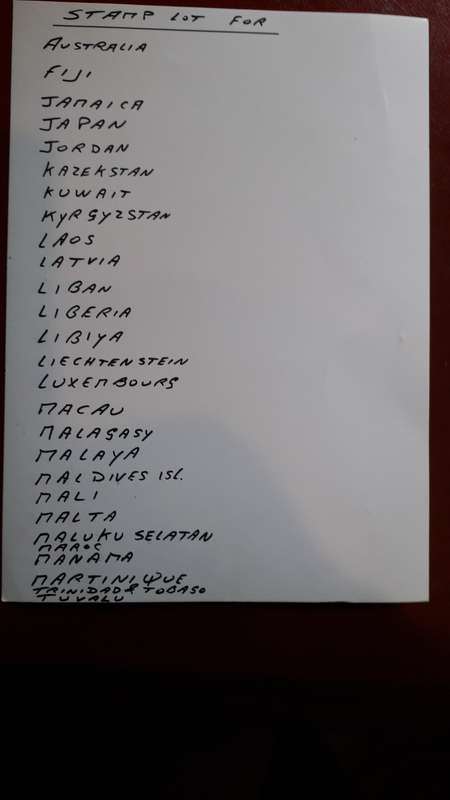 STAMP LOT FOR
AUSTRALIA
FIJI
JAMAICA
JAPAN
JORDAN
KAZEKSTAN
KUWAIT
KYRGYZSTAN
LAOS
LATVIA
LIBAN
LIBERIA
LIBIYA
LIECHTENSTEIN
LUXEMBOURG
MACAU
MALAGASY
MALAYA
MALDIVES ISL.
MALI
MALTA
MALUKU SELATAN
MAROC
MANAMA
MARTINIQUE
TRINIDAD & TOBASO
TUVALU